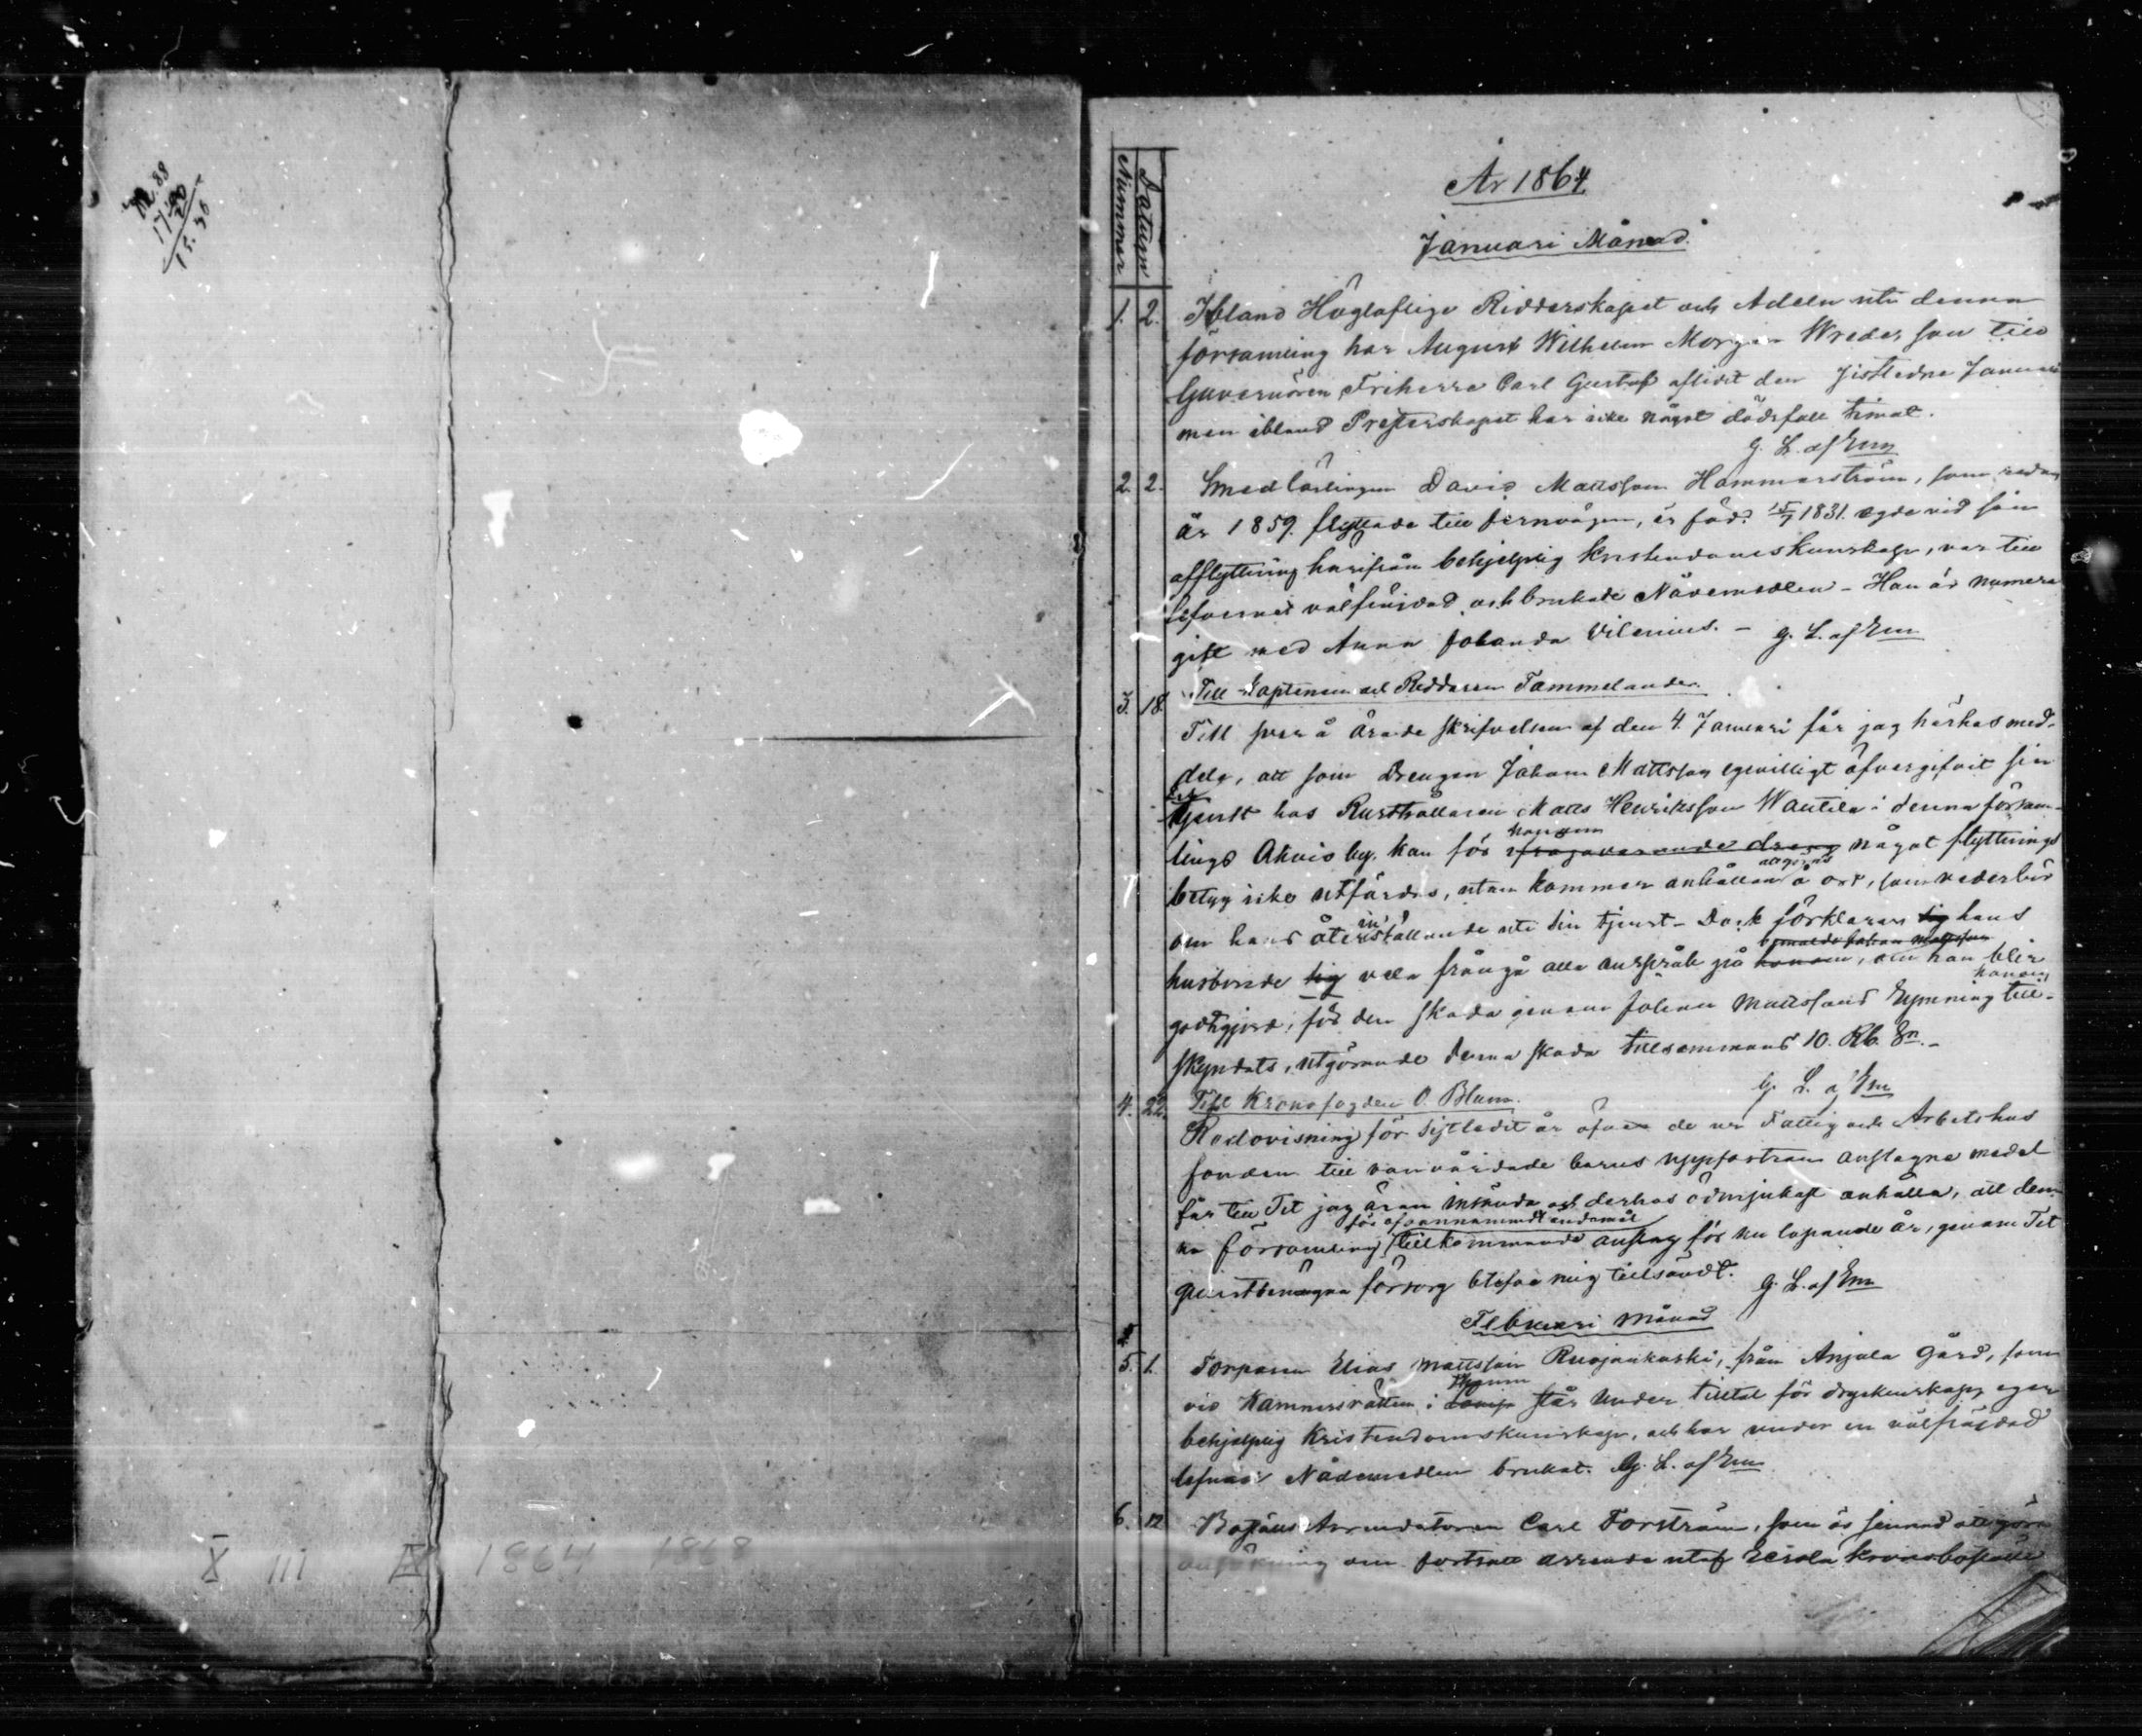 17
År 1864
Januari Månad.
Nummer Datum
1. 2. Ibland Högloflige Ridderskapet och Adeln uti denna
församling har August Wilhelm Wrede, son till
Guvernören, Friherre Carl Gustaf aflidit den sistledne Januari
men ibland Presterskapet har icke något dödsfall timat.
G. L. af Em
2. 2. Smedlärlingen David Mattsson Hammarström, som redan
år 1859. flyttade till jernvägen, är född 1831. egde vid sin
afflyttning härifrån behjelplig kristendomskunskap, var till
lefvernet välfrejdad och brukade Nådemedlen – Han är numera
gift med Anna Johanda Vilenius. – G. L. af Em
3. 18. Till Kaptenen och Riddaren Tammelander.
Till svar å ärade skrifvelsen af den 4. Januari får jag härhos med-
dela, att som Drengen Johan Mattsson egenvilligt öfvergifvit sin
tjenst hos Rusthållaren Matts Henriksson Wanttila i denna försam-
honom
lings Akvis by, kan för ifrågavarande dreng något flyttnings
betyg icke utfärdas, utan kommer anhållan å ort, som vederbör
om hans återinställande uti sin tjenst – Dock förklarar sig hans
bemälde Johan Mattsson
husbonde sig vela frångå alla anspråk på honom, om han blir
honom
godtgjord, för den skada genom Johan Mattssons rymning till-
skyndats, utgörande denna skada tillsammans 10. Rb. Sr. –
G. L. af Em
4. 22. Till Kronofogden O. Blum.
Redovisning för sistledit år öfver de ur Fattig och Arbetshus
fonden till vanvårdade barns uppfostran anslagne medel
får till Tit jag äran insända och derhos ödmjukast anhålla, att den-
för ofvannämndt ändamål
na församling tillkommande anslag för nu löpande år, genom Tit
gunstbenägna försorg blefve mig tillsändt. G. L. af Em
Februari Månad
5. 1. Torparen Elias Mattsson Ruojankoski, från Anjala Gård, som
vid Kämnersrätten i Lovisa står under tilltal för dryckenskap, eger
behjelplig Kristendomskunskap, och har under en välfrejdad
lefnad Nådemedlen brukat. G. L. af Em
6. 12 Boställs Arrendatoren Carl Forström, som är sinnad att göra
ansökning om fortsatt arrende utaf kronoboställe
X III IX 1864 1868